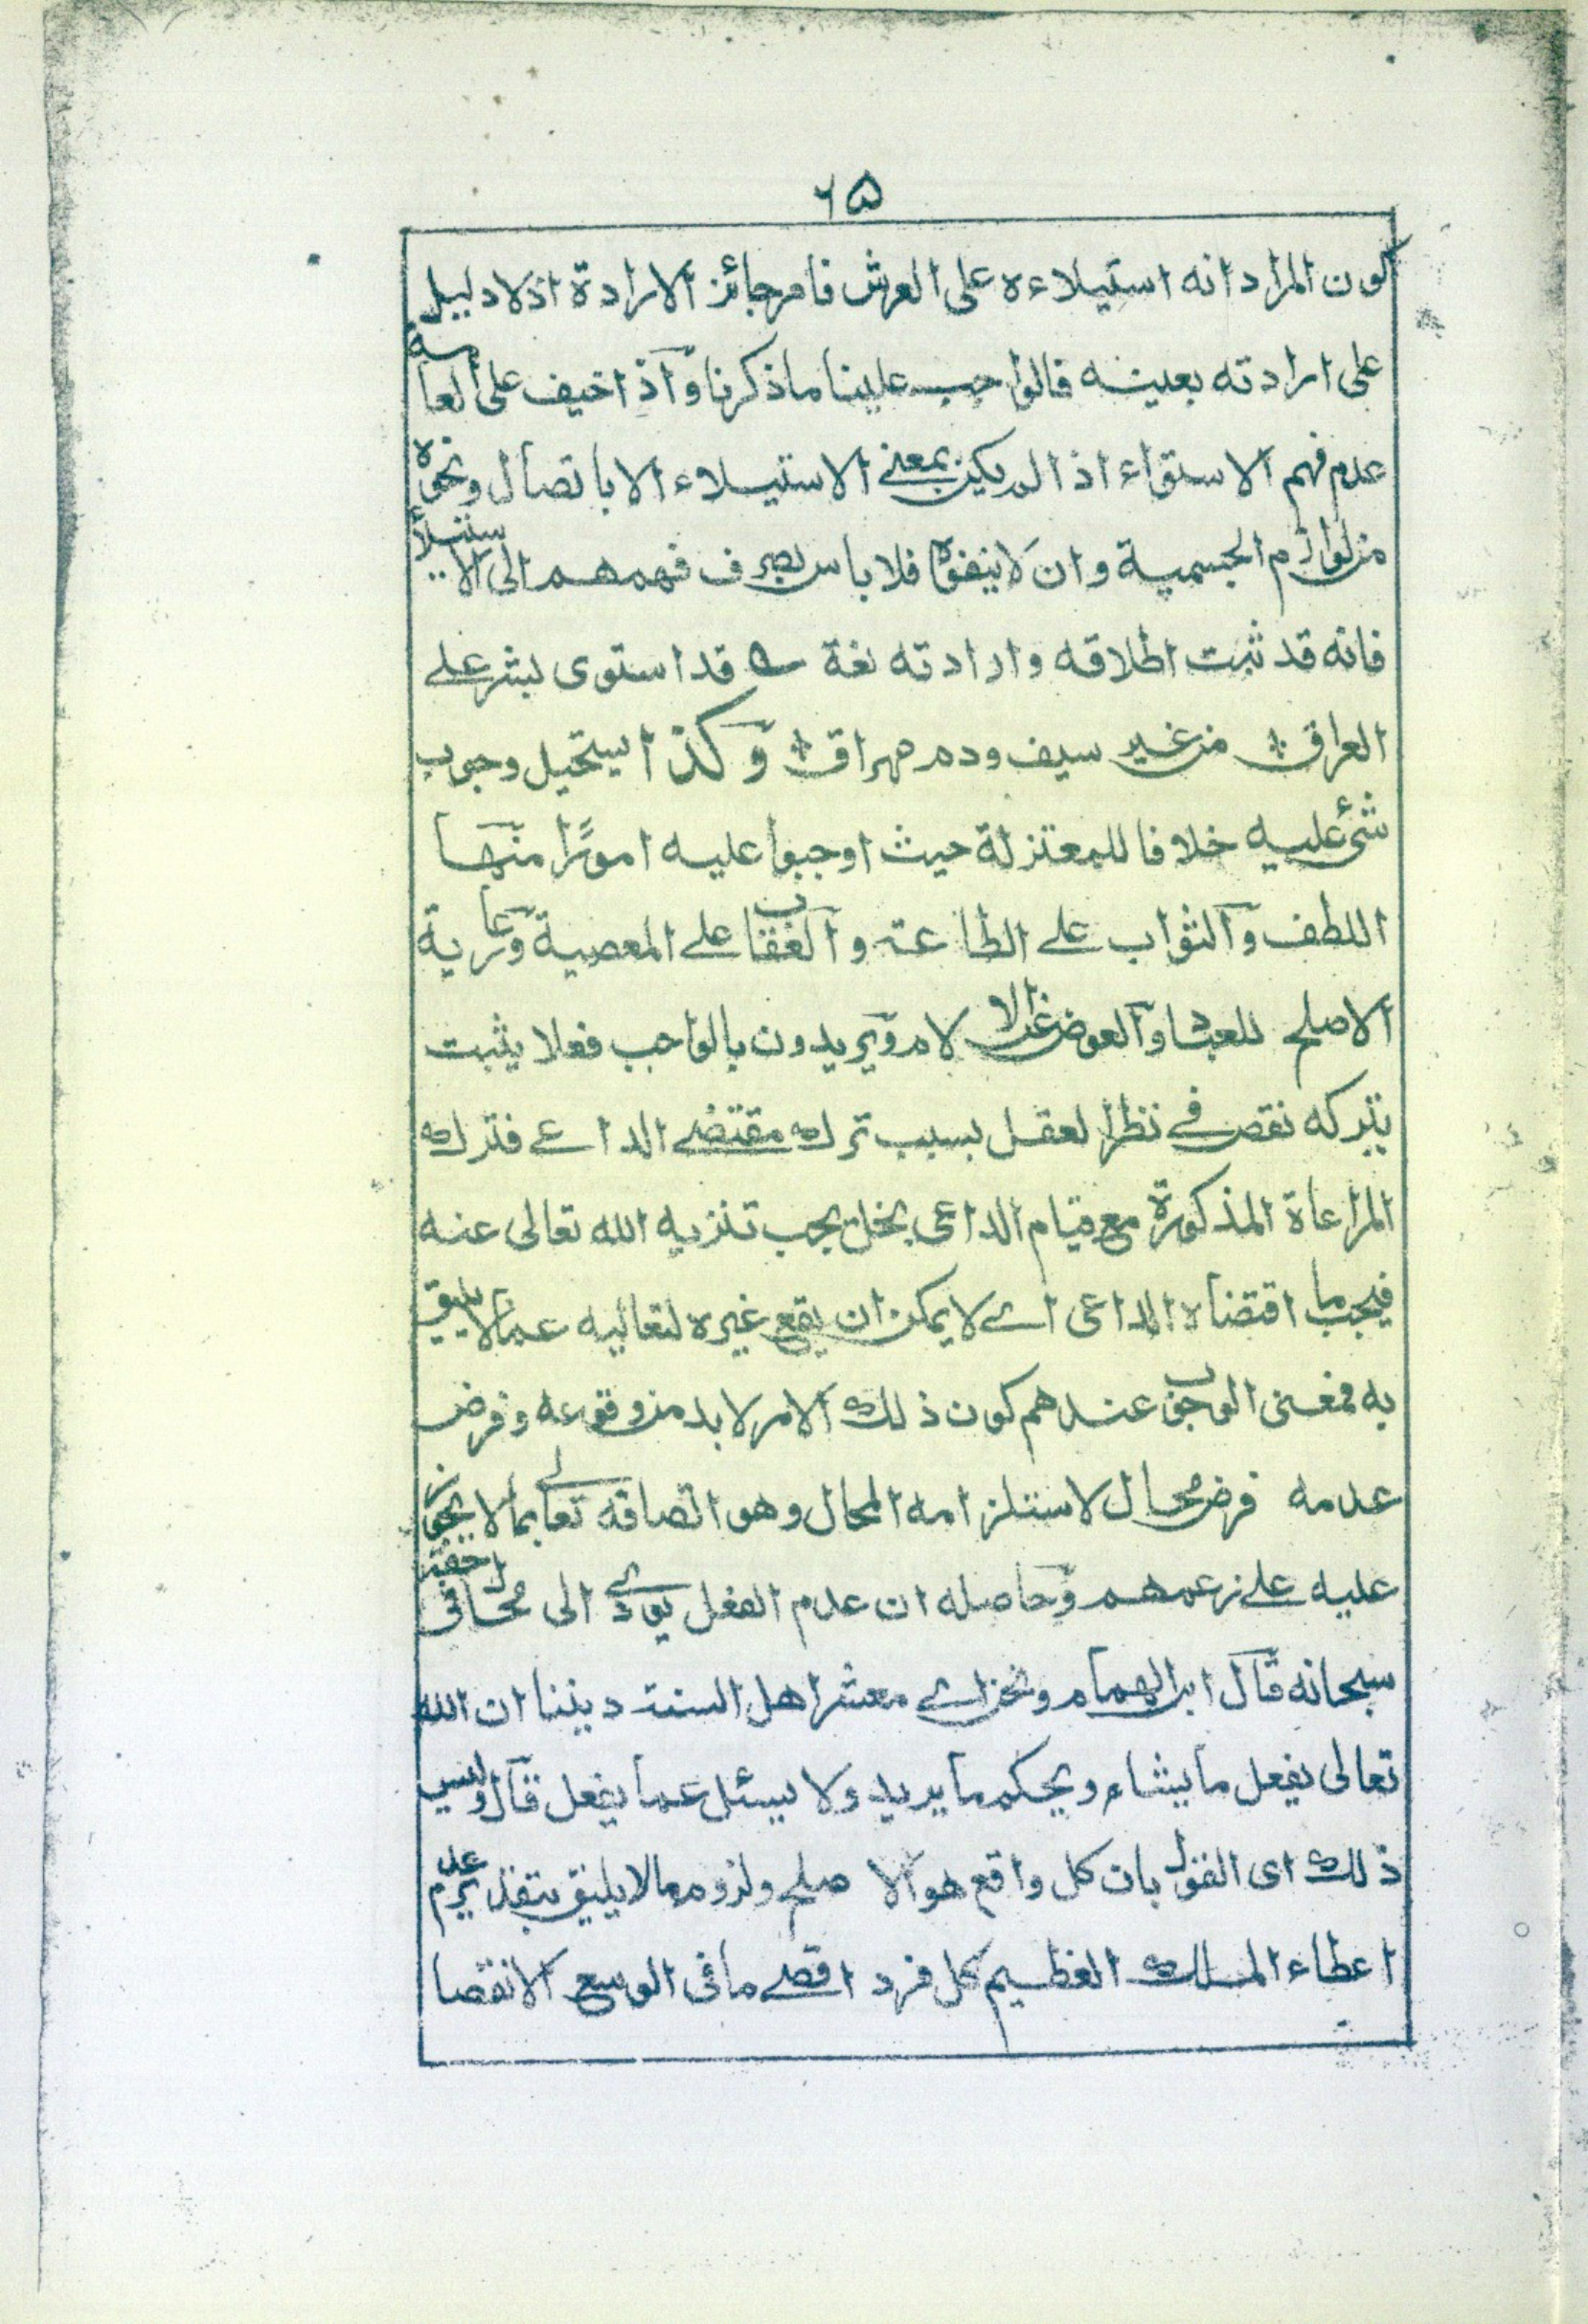 ٦٥
كون المراد انه استيلاءه على العرش فامر جائز الارادة اذ لا دليل
على ارادته بعينه فالواجب علينا ما ذكرنا واذ اخيف على العامة
عدم فهم الاستواء اذا لم يكن بمعنى الاستيلاء الا باتصال ونحوه
من لوازم الجسمية وان لا ينفوه فلا باس بصرف فهمهم الى الاستيلاء
فانه قد ثبت اطلاقه وارادته لغة قد استوى بشر على
العراق من غير سيف ودم مهراق وكذا يستحيل وجوب
شئ عليه خلافا للمعتزلة حيث اوجبوا عليه امورًا منها
اللطف والثواب على الطاعة والعقاب على المعصية ورعاية
الاصلح للعباد والعوض على الالام ويريدون بالواجب فعلا يثبت
بتركه نقص في نظر العقل بسبب ترك مقتضے الداعے فترك
المراعاة المذكورة مع قيام الداعى بخل يجب تنزيه الله تعالى عنه
فيجب ما اقتضاه الداعى اے لا يمكن ان يقع غيره لتعاليه عما لا يليق
به فمعنى الوجوب عندهم كون ذلك الامر لا بد من وقوعه وفرض
عدمه فرض محال لاستلزامه المحال وهو اتصافه تعالے بما لا يجوز
عليه علے زعمهم وحاصله ان عدم الفعل يودے الى محال فى حقه
سبحانه قال ابن الهمام ونحن اے معشر اهل السنة ديننا ان الله
تعالى يفعل ما يشاء ويحكم ما يريد ولا يسئل عما يفعل قال وليس
ذلك اى القول بان كل واقع هو الاصلح ولزوم ما لا يليق بتقدير عدم
اعطاء الملك العظيم كل فرد اقصے ما فى الوسع الا نقصا